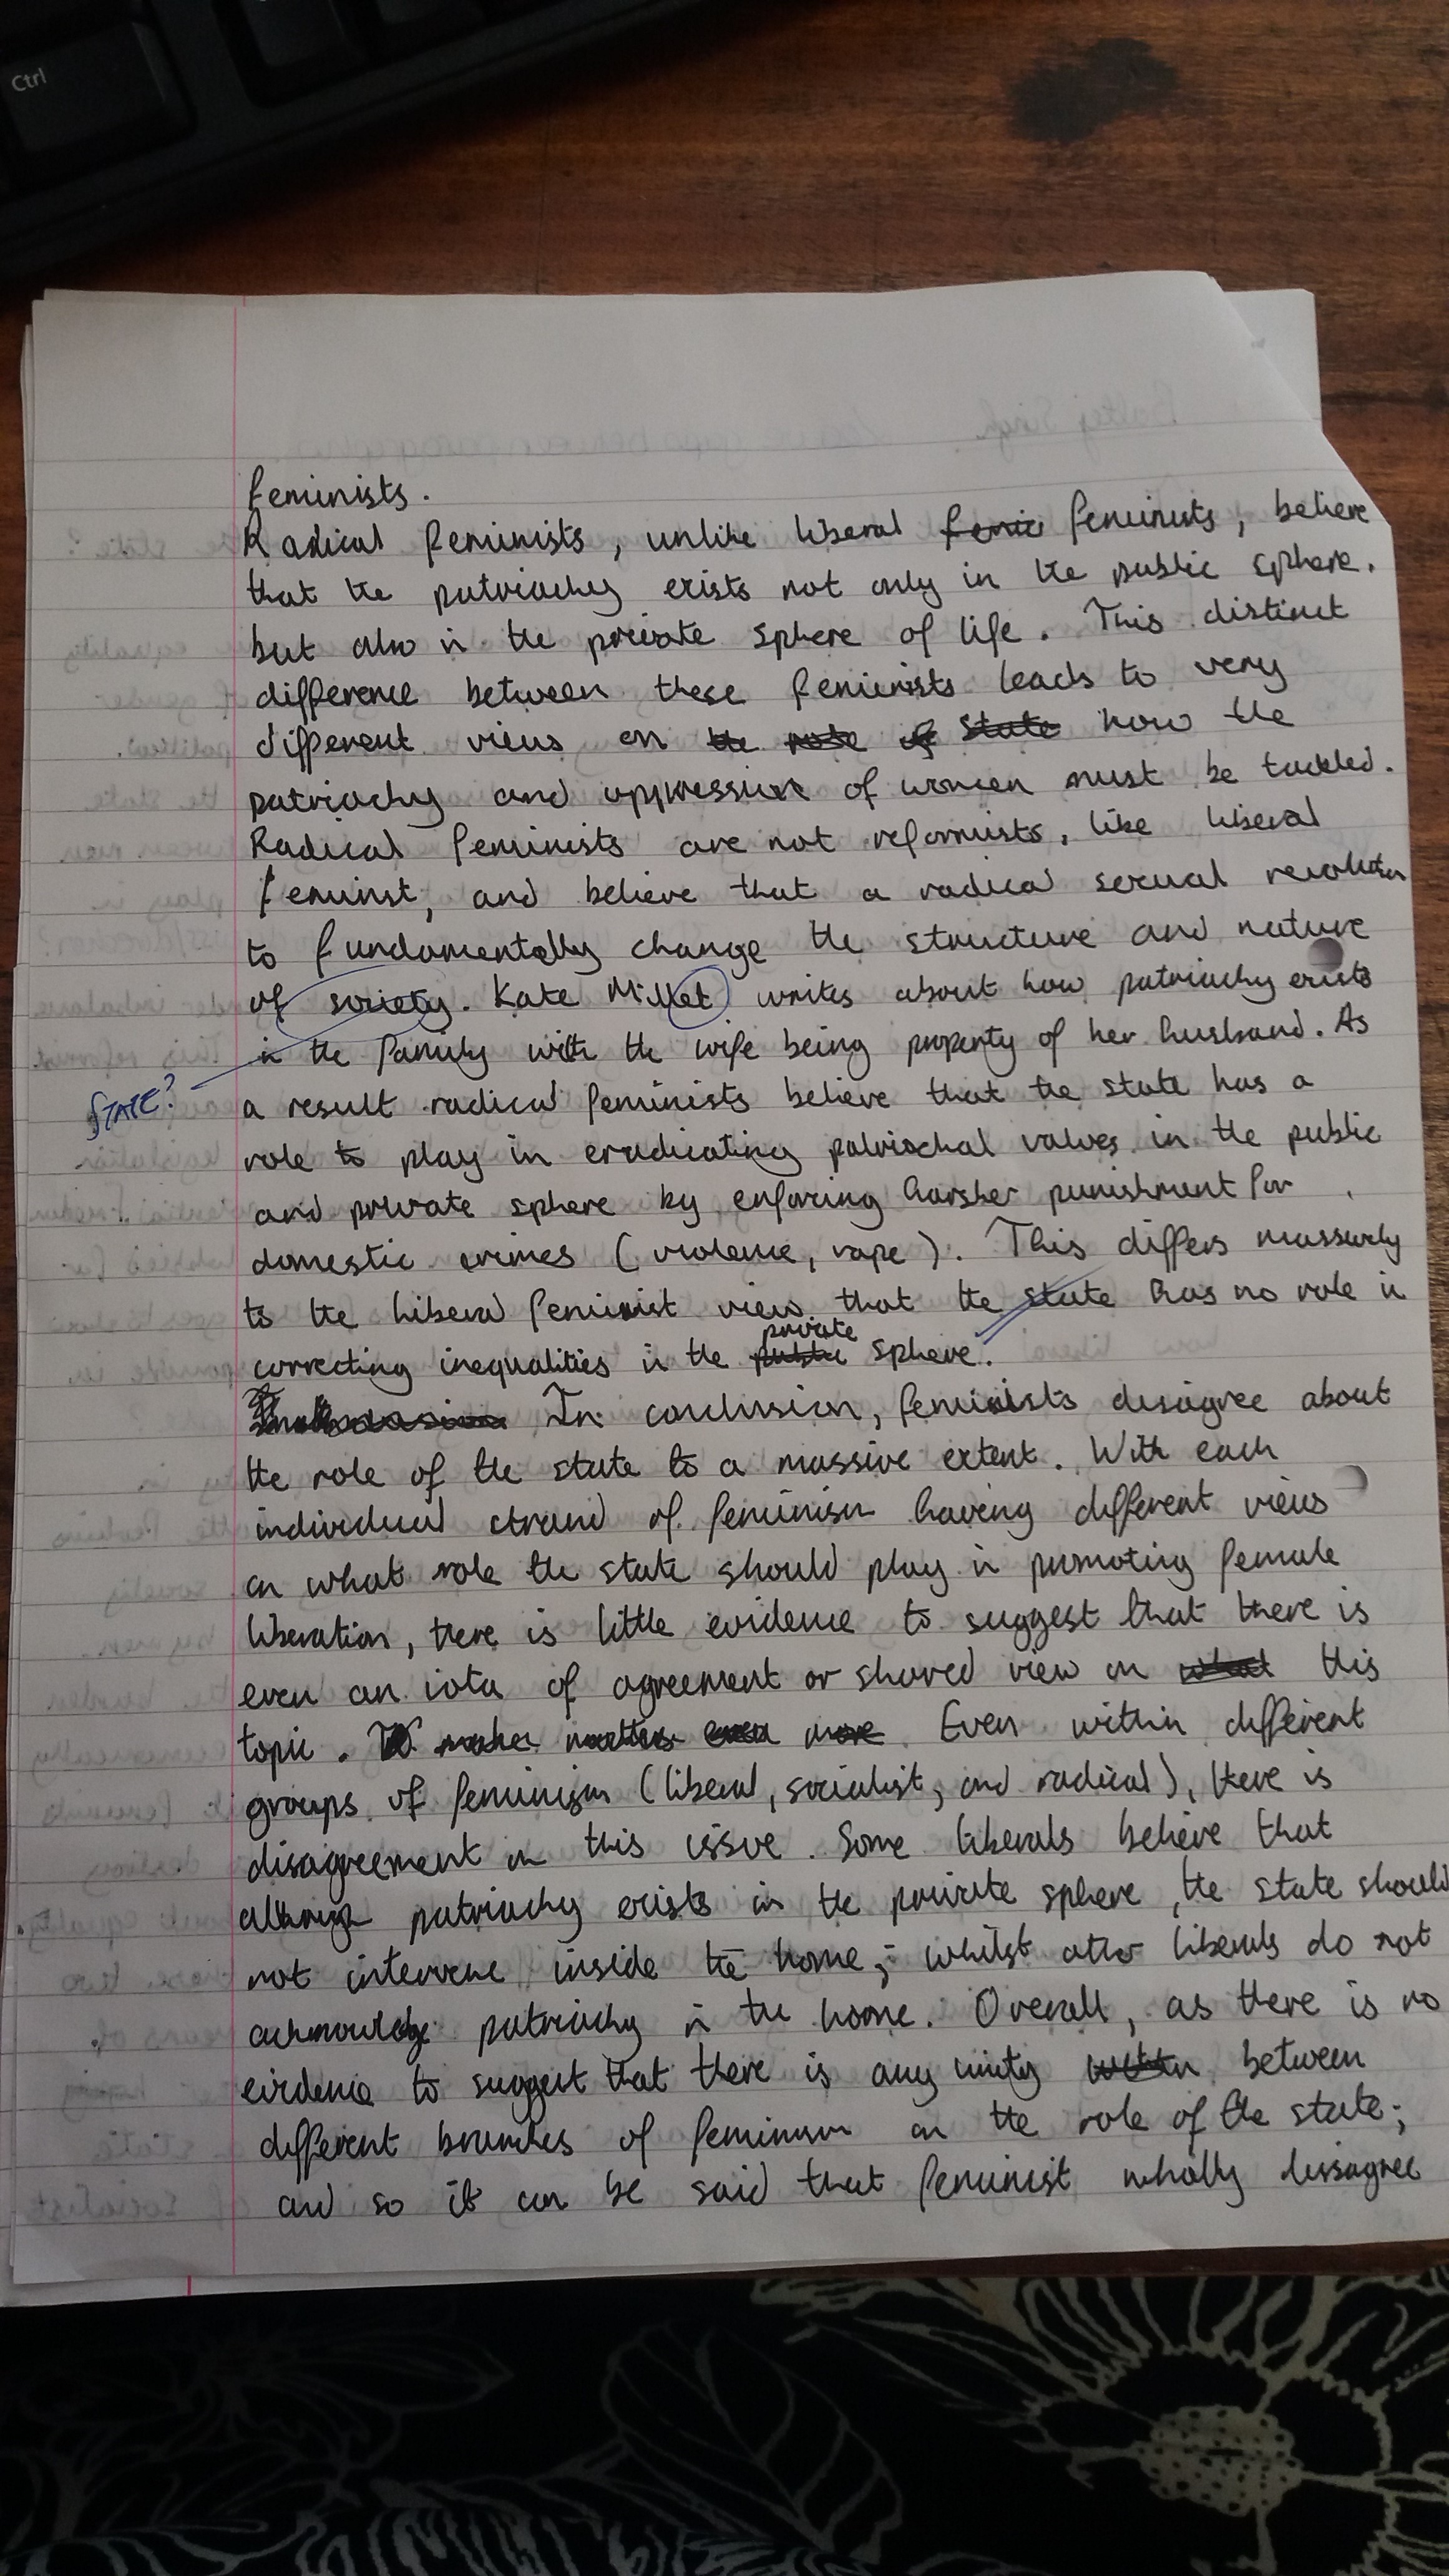 Ctrl
feminists.
Radical feminists, unlike liberal femie feminists, believe
that the patriachy exists not only in the public sphere.
but also in the private sphere of life. This distinct
difference between these feminists leads to very
different views on the role of state how the
patriachy and oppression of women must be tackled.
Radical feminists are not reformists, like liberal
feminst, and believe that a radical sexual revolution
to fundamentally change the structure and nature
of society. Kate Millet writes about how patriachy exists
in the family with the wife being property of her husband. As
STATE?
a result radical feminists believe that the state has a
role to play in eradicating patriachal values in the public
and private sphere by enforcing harsher punishment for
domestic crimes (violence, rape). This differs massively
to the liberal feminist view that the state has no role in
private
correcting inequalities in the public sphere.
In conclusion, feminists disagree about
the role of the state to a massive extent. With each
individual strand of feminism having different views
on what role the state should play in promoting female
liberation, there is little evidence to suggest that there is
even an iota of agreement or shared view on what this
topic. To make matters even more Even within different
groups of feminism (liberal, socialist, and radical), there is
disagreement on this issue. Some liberals believe that
although patriachy exists in the private sphere, the state should
not intervene inside the home; whilst other liberals do not
acknowledge patriachy in the home. Overall, as there is no
evidence to suggest that there is any unity within between
different branches of feminism on the role of the state;
and so it can be said that feminist wholly dissagree